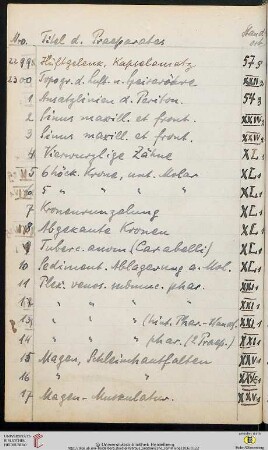 Nro. Titel d. Praeparates Stand ort.
2299 Hüftgelenk, Kapselansatz 57 8
2300 Topogr. d. Luft- u. Speiseröhre XXIV
1 Ansatzlinien d. Periton. 54 3
2 Sinus maxill. et front. XXIV
3 Sinus maxill. et front.
4 Vierwurzlige Zähne XL 1
5 6 höck. Krone, unt. Molar XL 1
6 5 " " " XL 1
7 Kronenrunzelung XL 1
8 Abgekaute Kronen XL 1
9 Tuberc. anom (Carabelli) XL 1
10 Sediment. Ablagerung a. Mol. XL 1
11 Plex. venos. submuc. phar. XXV 1
12 " " " "
13 " " " (hint. Phar.-Wand)
14 " " " phar. (2 Praep.) XXV 1
15 Magen, Schleimhautfalten XXV 1
16 " "
17 Magen-Muskulatur. XXV 1
UNIVERSITÄTS-
BIBLIOTHEK
HEIDELBERG
© Universitätsbibliothek Heidelberg